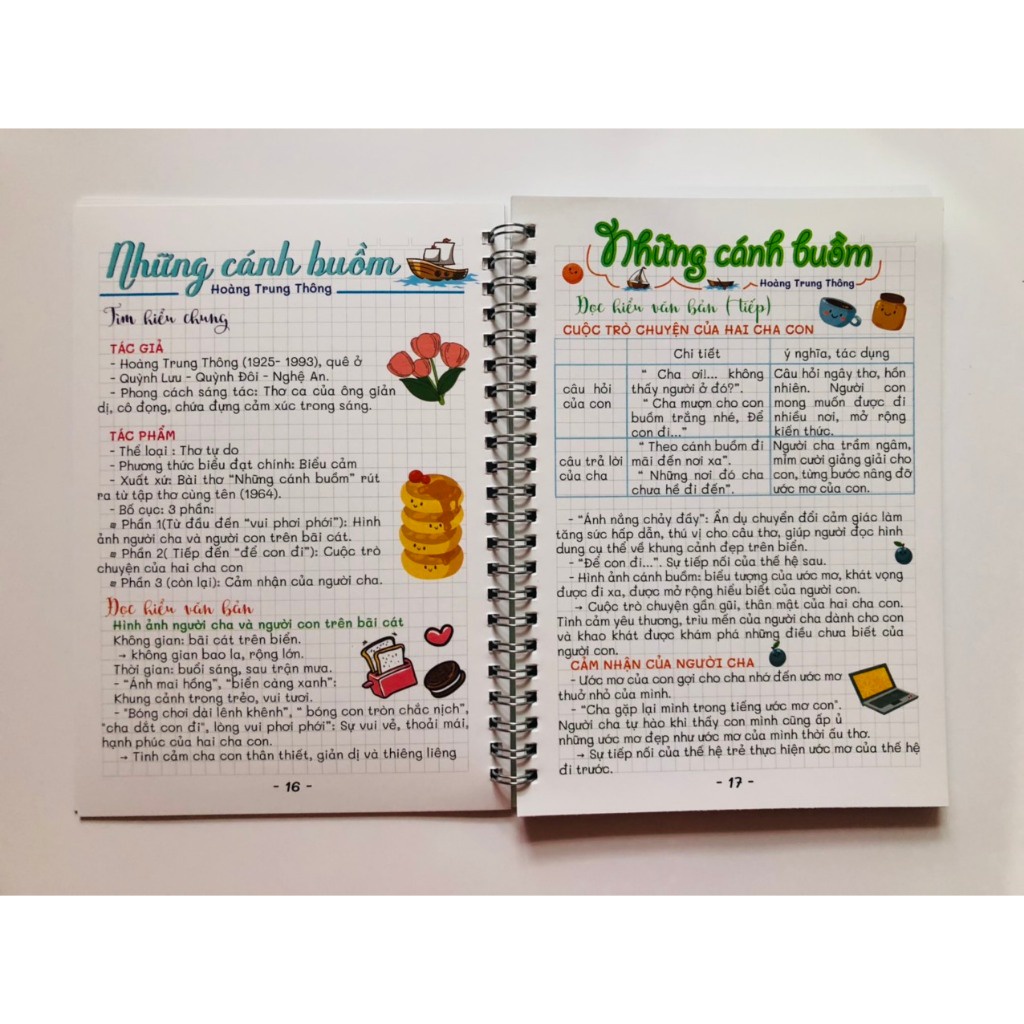 Những cánh buồm
Hoàng Trung Thông
Tìm hiểu chung
TÁC GIẢ
- Hoàng Trung Thông (1925- 1993), quê ở
- Quỳnh Lưu - Quỳnh Đôi - Nghệ An.
- Phong cách sáng tác: Thơ ca của ông giản
dị, cô đọng, chứa đựng cảm xúc trong sáng.
TÁC PHẨM
- Thể loại : Thơ tự do
- Phương thức biểu đạt chính: Biểu cảm
- Xuất xứ: Bài thơ “Những cánh buồm” rút
ra từ tập thơ cùng tên (1964).
- Bố cục: 3 phần:
Phần 1(Từ đầu đến “vui phơi phới”): Hình
ảnh người cha và người con trên bãi cát.
Phần 2( Tiếp đến “để con đi”): Cuộc trò
chuyện của hai cha con
Phần 3 (còn lại): Cảm nhận của người cha.
Đọc hiểu văn bản
Hình ảnh người cha và người con trên bãi cát
Không gian: bãi cát trên biển.
→ không gian bao la, rộng lớn.
Thời gian: buổi sáng, sau trận mưa.
- “Ánh mai hồng”, “biển càng xanh”:
Khung cảnh trong trẻo, vui tươi.
- "Bóng chơi dài lênh khênh”, “ bóng con tròn chắc nịch”,
"cha dắt con đi", lòng vui phơi phới”: Sự vui vẻ, thoải mái,
hạnh phúc của hai cha con.
→ Tình cảm cha con thân thiết, giản dị và thiêng liêng
- 16 -
Những cánh buồm
Hoàng Trung Thông
Đọc hiểu văn bản ( tiếp)
CUỘC TRÒ CHUYỆN CỦA HAI CHA CON
Chi tiết ý nghĩa, tác dụng
câu hỏi
của con
“ Cha ơi!... không
thấy người ở đó?”.
“ Cha mượn cho con
buồm trắng nhé, Để
con đi...”
Câu hỏi ngây thơ, hồn
nhiên. Người con
mong muốn được đi
nhiều nơi, mở rộng
kiến thức.
câu trả lời
của cha
“ Theo cánh buồm đi
mãi đến nơi xa”.
“ Những nơi đó cha
chưa hề đi đến”.
Người cha trầm ngâm,
mỉm cười giảng giải cho
con, từng bước nâng đỡ
ước mơ của con.
- “Ánh nắng chảy đầy”: Ẩn dụ chuyển đổi cảm giác làm
tăng sức hấp dẫn, thú vị cho câu thơ, giúp người đọc hình
dung cụ thể về khung cảnh đẹp trên biển.
- “Để con đi...”. Sự tiếp nối của thế hệ sau.
- Hình ảnh cánh buồm: biểu tượng của ước mơ, khát vọng
được đi xa, được mở rộng hiểu biết của người con.
→ Cuộc trò chuyện gần gũi, thân mật của hai cha con.
Tình cảm yêu thương, trìu mến của người cha dành cho con
và khao khát được khám phá những điều chưa biết của
người con.
CẢM NHẬN CỦA NGƯỜI CHA
- Ước mơ của con gợi cho cha nhớ đến ước mơ
thuở nhỏ của mình.
- “Cha gặp lại mình trong tiếng ước mơ con".
Người cha tự hào khi thấy con mình cũng ấp ủ
những ước mơ đẹp như ước mơ của mình thời ấu thơ.
→ Sự tiếp nối của thế hệ trẻ thực hiện ước mơ của thế hệ
đi trước.
- 17 -